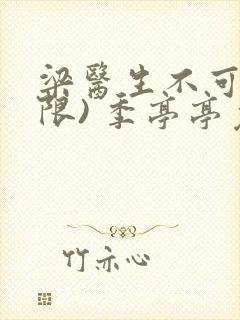 梁醫生不可
限）季亭亭
竹亦心